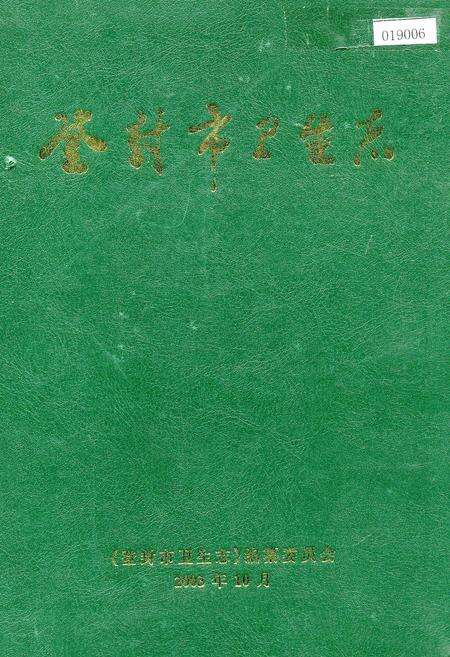 019006
登封市卫生志
《登封市卫生志》编纂委员会
2003 年 10 月